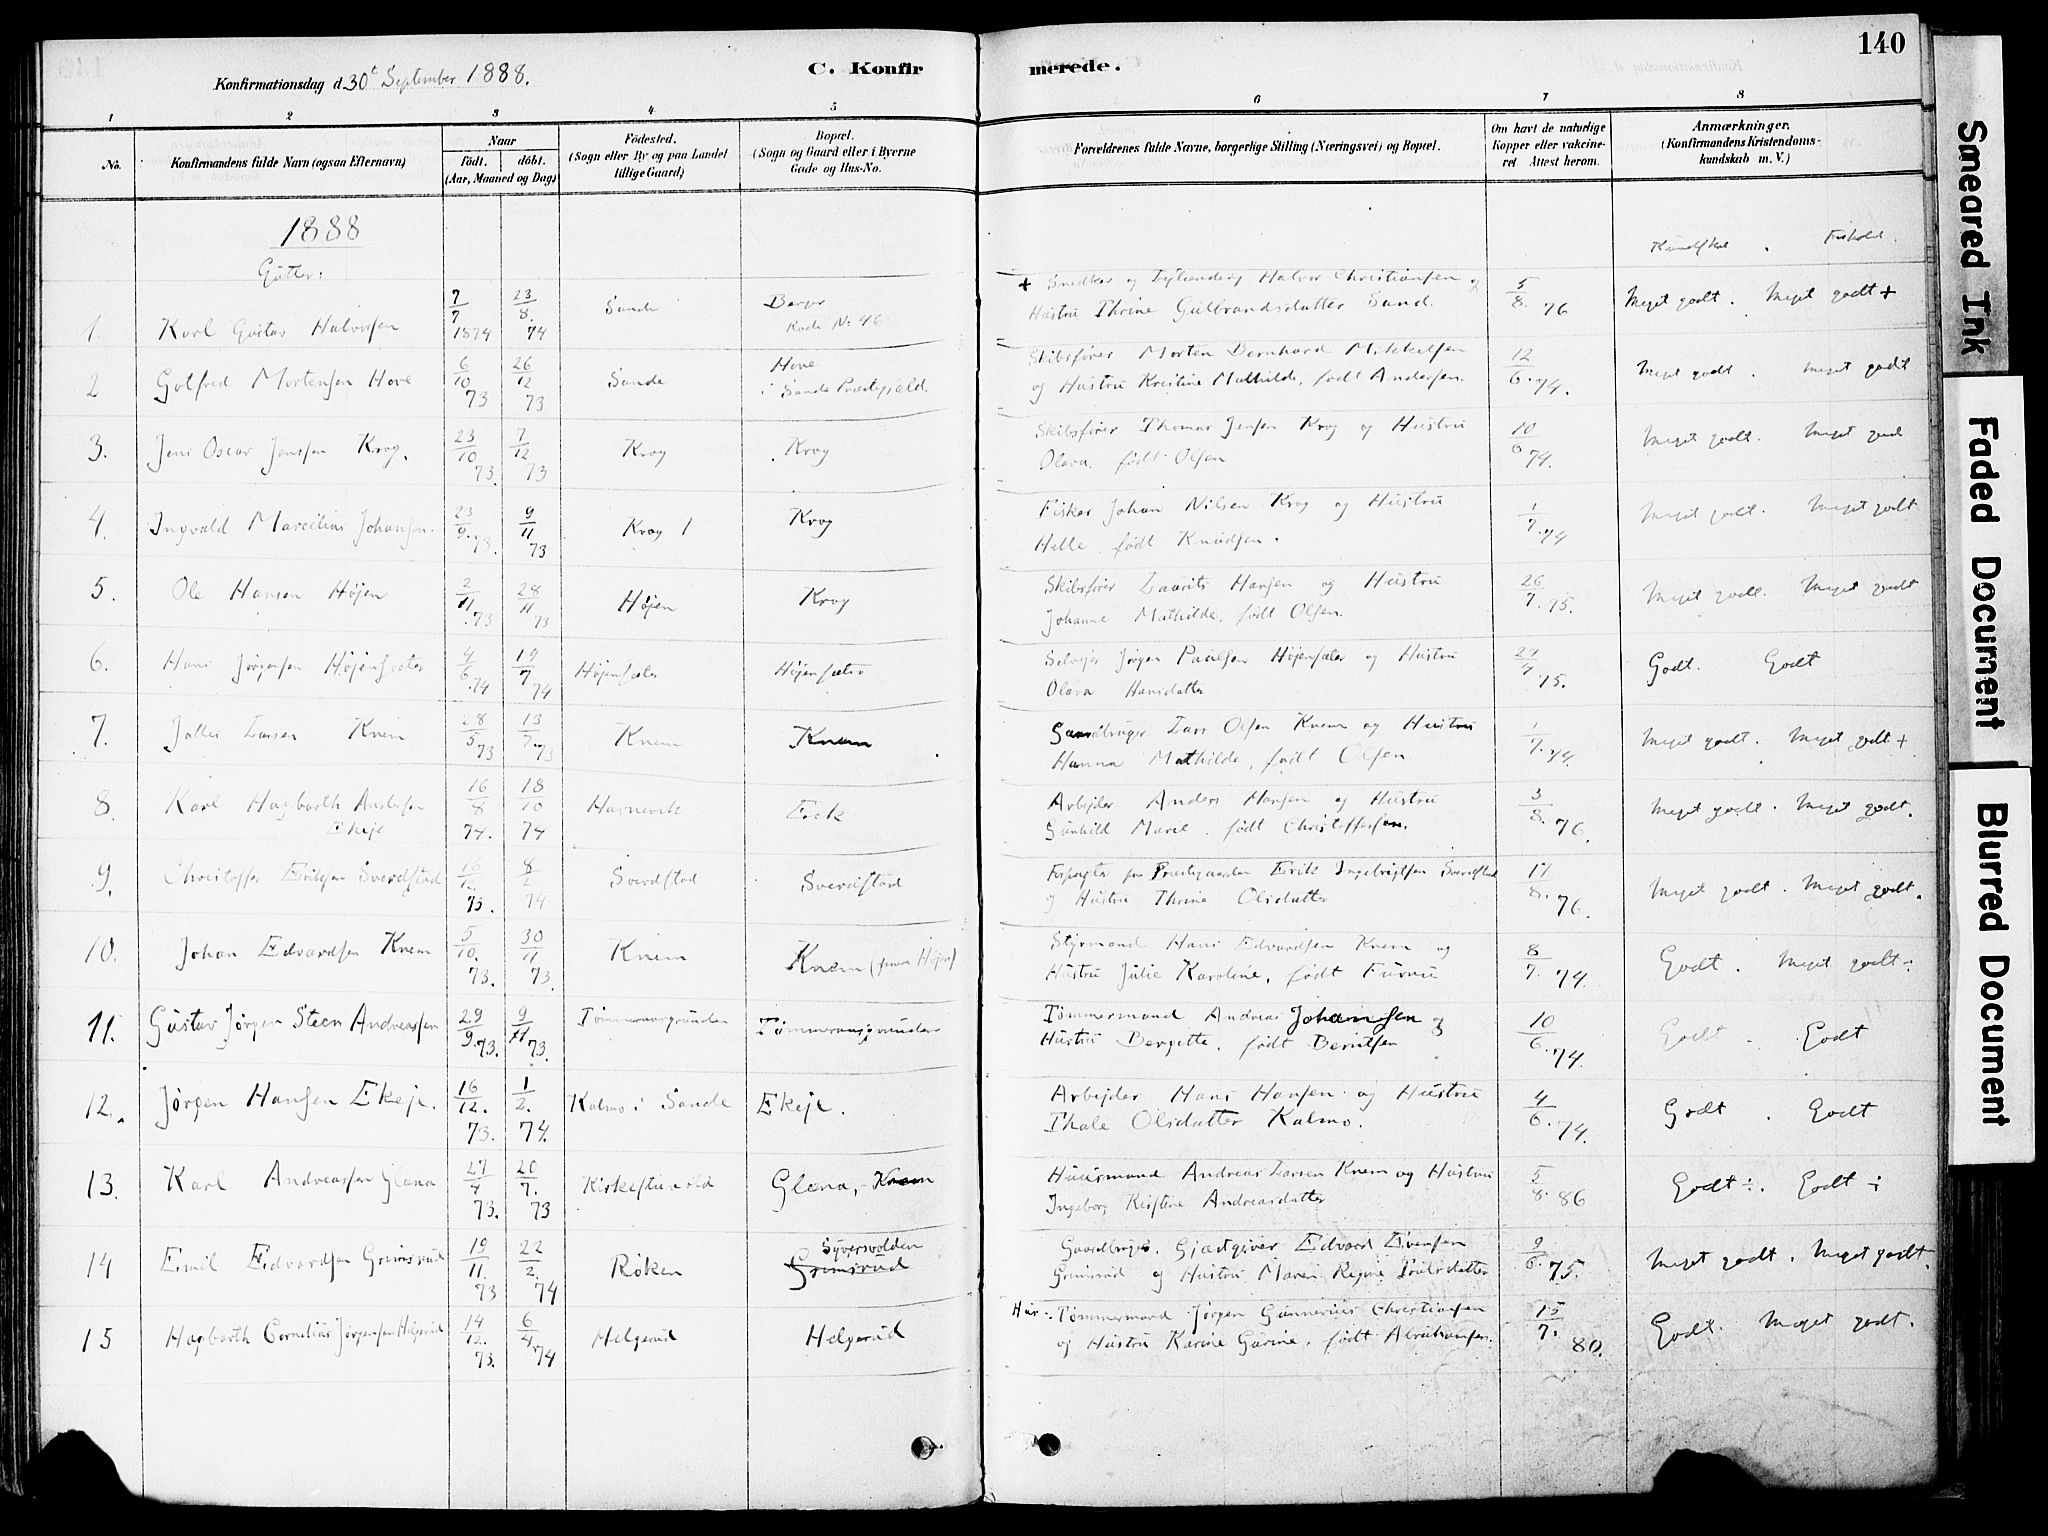 140
Konfirmationsdag d. 30t September 1888.
C. Konfirmerede.
1 2 3 4 5 6 7 8
No.
Konfirmandens fulde Navn (ogsaa Efternavn)
Naar
födt. döbt.
(Aar, Maaned og Dag)
Födested.
(Sogn eller By og paa Landet
tillige Gaard)
Bopæl.
(Sogn og Gaard eller i Byerne
Gade og Hus-No.
Forældrenes fulde Navne, borgerlige Stilling (Næringsvei) og Bopæl.
Om havt de naturlige
Kopper eller vakcine-
ret Attest herom.
Anmærkninger.
(Konfirmandens Kristendoms-
kundskab m. V.)
1888
Gutter:
Kundskab . Forhold.
1. Karl Gustav Halvorsen 7/7 1874 23/8. 74 Sande Berger Rode N: 46
+ Snedker og Halvor Christiansen og
Hustru Thrine Gulbrandsdatter Sand. 5/8. 76 Meget godt. Meget godt +
2 Gotfred Mortensen Hove 6/10 73 26/12 73 Sande Hove i Sande Præstegjæld.
Skibsfører Morten Bernhard Mikkelsen
og Hustru Kristine Mathilde, født Andersen. 12/6. 74. Meget godt . Meget godt
3. Jens Oscar Jensen Krog. 23/10 73. 7/12 73 Krog Krog
Skibsfører Thomas Jensen Krog og Hustru
Olava født Olsen 10/6 74. Meget godt. Meget godt
4. Ingvald Marcilius Johansen. 23/9. 73. 9/11 73 Krog Krog
Fisker Johan Nilsen Krog og Hustru
Helle født Knudsen. 1/7. 74 Meget godt. Meget godt
5. Ole Hansen Højen 2/11 73 28/11 73 Højen Krog
Skibsfører Laurits Hansen og Hustru
Johanne Mathilde, født Olsen. 26/7. 75. Meget godt. Meget godt
6. Hans Jørgensen Højensæter 4/6 74 19/7 74 Højensæter Højensæter
Selvejer Jørgen Paulsen Højensæter og Hustru
Olava Hansdatter 75. Godt. Godt
7. Larsen Knem 28/5 73 13/7. 73 Knem Knem
Gaardbruger Lars Olsen Knem og Hustru
Hanna Mathilde, født Olsen 1/7. 74. Meget godt. Meget godt +
8. Karl Hagbarth Andersen Ekeje 16/8 74. 18/10 74 Havnevik Eick
Arbejder Anders Hansen og Hustru
Gunhild Marie, født Christoffersen. 3/8. 76. Meget godt. Meget godt.
9. Christoffer Eriksen Sverdstad 16/12. 73. 8/2 74 Sverdstad Sverdstad
Forpagter paa Præstegaarden Erik Ingebrigtsen Sverdstad
og Hustru Thrine Olsdatter 17/8. 76. Meget godt. Meget godt.
10. Johan Edvardsen Knem 5/10. 73. 30/11 73. Knem Knem
Styrmand Hans Edvardsen Knem og
Hustru Julie Karoline, født Furnu 8/7. 74. Godt. Meget godt ÷
11. Gustav Jørgen Steen Andreassen 29/9. 73. 9/11 73. Tømmeraasgrunden Tømmeraasgrunden
Tømmermand Andreas Johannesen og
Hustru Bergette. født Berntsen 10/6. 74. Godt . Godt
12. Jørgen Hansen Ekeje. 16/12. 73. 1/2. 74. Kalmo i Sande Ekeje.
Arbejder Hans Hansen og Hustru
Thale Olsdatter Kalmo. 4/6. 74. Godt . Godt
13. Karl Andreassen Glæna 27/4 73. 20/7. 73 Glæna, Knem
Huusmand Andreas Larsen Knem og Hustru
Ingeborg Kristine Andreasdatter 5/8. 86 Godt ÷. Godt ÷
14 Emil Edvardsen Grimsrud 19/11. 73 22/2. 74 Røken Syversvolden Grimsrud
Gaardbruger. Gjæstgiver Edvard Evensen
Grimsrud og Hustru Maren Regine Poulsdatter 9/6. 75. Meget godt. Meget godt.
15 Hagbarth Cornelius Jørgensen Helgerud 14/12. 73. 6/4. 74 Helgerud Helgerud
Tømmermand Jørgen Gunnerius Christiansen
og Hustru Karine Gurine, født Abrahamsen. 15/7. 80. Godt. Meget godt.
Smeared Ink
Faded Document
Blurred Document